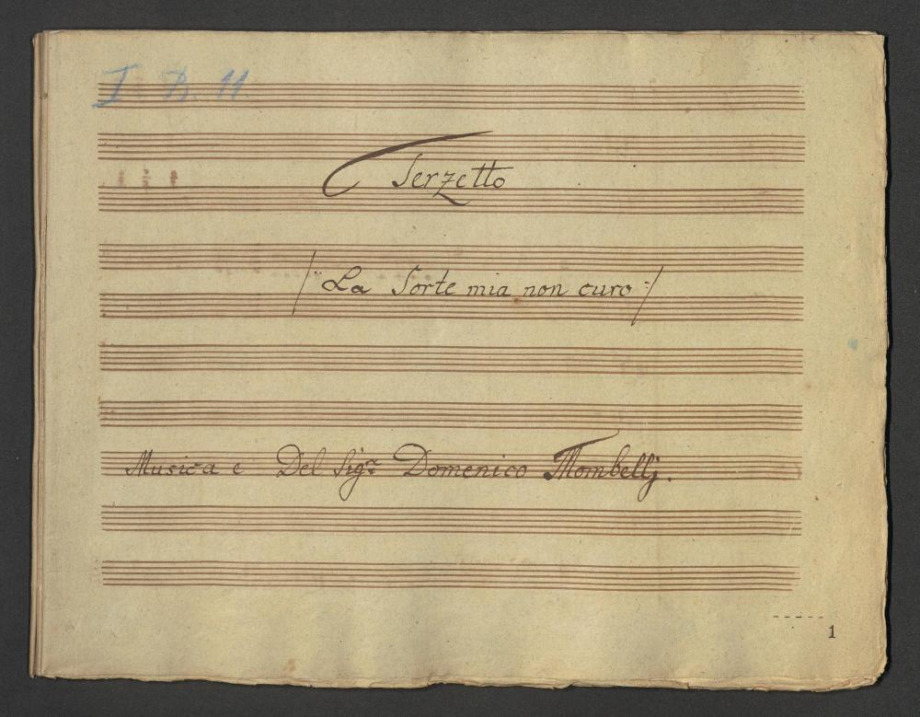 I. B. 11
Terzetto
/ "La Sorte mia non curo" /
Musica e Del Sigr Domenico Mombellj.
1